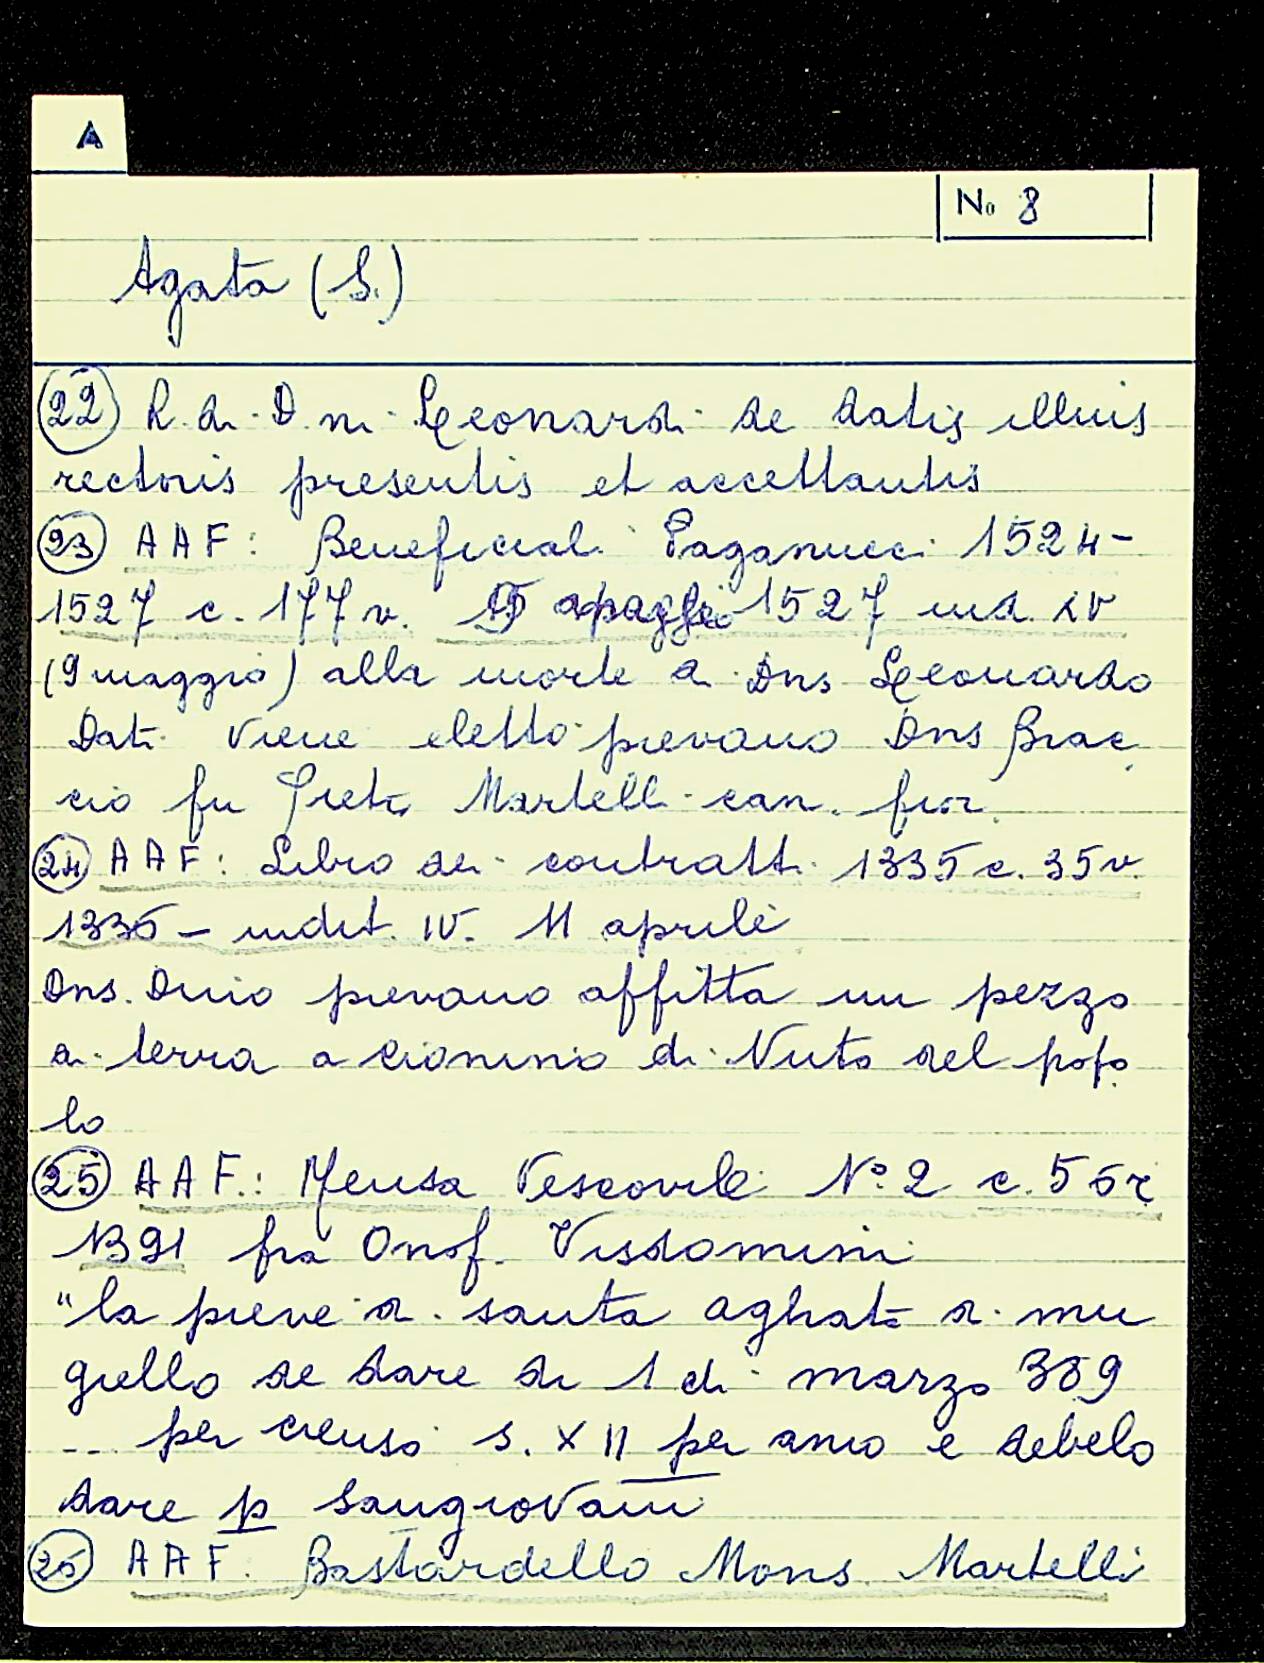 A
No 8
Agata (S.)
(22) R. di D. ni Leonardi de datis illius
rectoris presentis et accettantis
(23) AAF: Beneficiali Paganucci 1524-
1527 c. 177v. 1527 ind. XV
(9 maggio) alla morte di Dns Leonardo
Dati viene eletto pievano Dns Brac
cio fu Martelli can. fior.
(24) AAF: Libro dei contratti 1335 c. 35v.
1336 - indit. IV. 11 aprile
Dns. Duio pievano affitta un pezzo
di terra a Cionino di Nuto del popo
lo
(25) AAF.: Mensa Vescovile N° 2 c. 56r
1391 fra Onof. Visdomini
"la pieve di santa aghata di mu
giello de dare di 1 di marzo 389
... per cienso s. XII per anno e debelo
dare p Sangiovani
(26) AAF: Bastardello Mons. Martelli